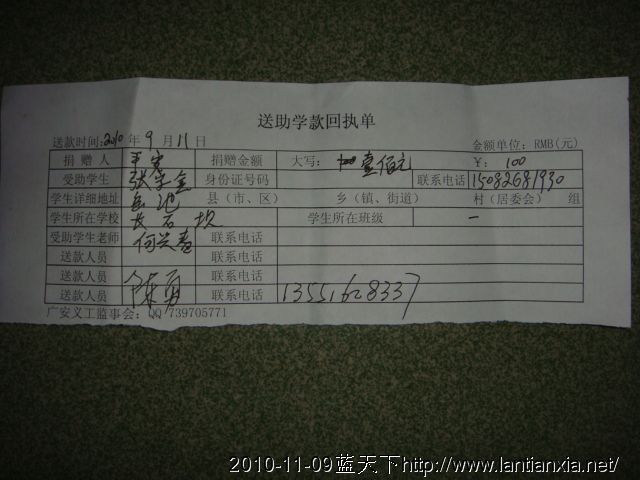 送助学款回执单
送款时间:2010年9月11日 金额单位: RMB(元)
捐赠人 捐赠金额 大写: 壹佰元 ¥: 100
受助学生 张学金 身份证号码 联系电话 15082681930
学生详细地址 岳池 县(市、区) 乡(镇、街道) 村(居委会) 组
学生所在学校 长石坝 学生所在班级 一
受助学生老师 何兴春 联系电话
送款人员 联系电话
送款人员 联系电话
送款人员 陈勇 联系电话 13551628337
广安义工监事会: QQ 739705771
2010-11-09蓝天下http://www.lantianxia.net/